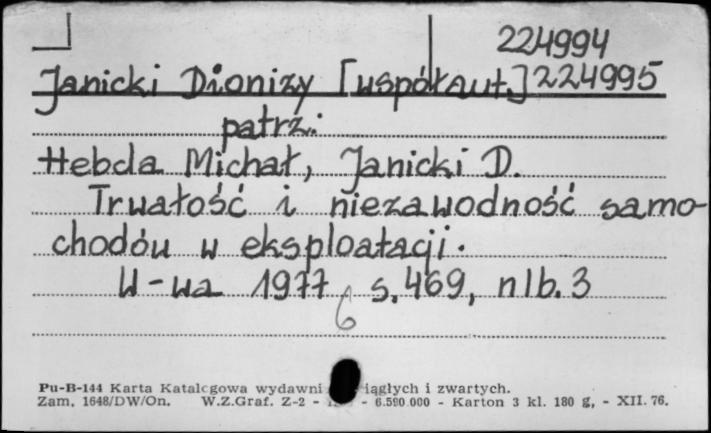 224994
Janicki Dionizy [współaut.] 224995
patrz:
Hebda Michał, Janicki D.
Trwałość i niezawodność samo-
chodów w eksploatacji.
W-wa 1977 s. 469, nlb. 3
6
Pu-B-144 Karta Katalogowa wydawni iągłych i zwartych.
Zam. 1648/DW/On. W.Z.Graf. Z-2 - - 6.590.000 - Karton 3 kl. 180 g, - XII. 76.